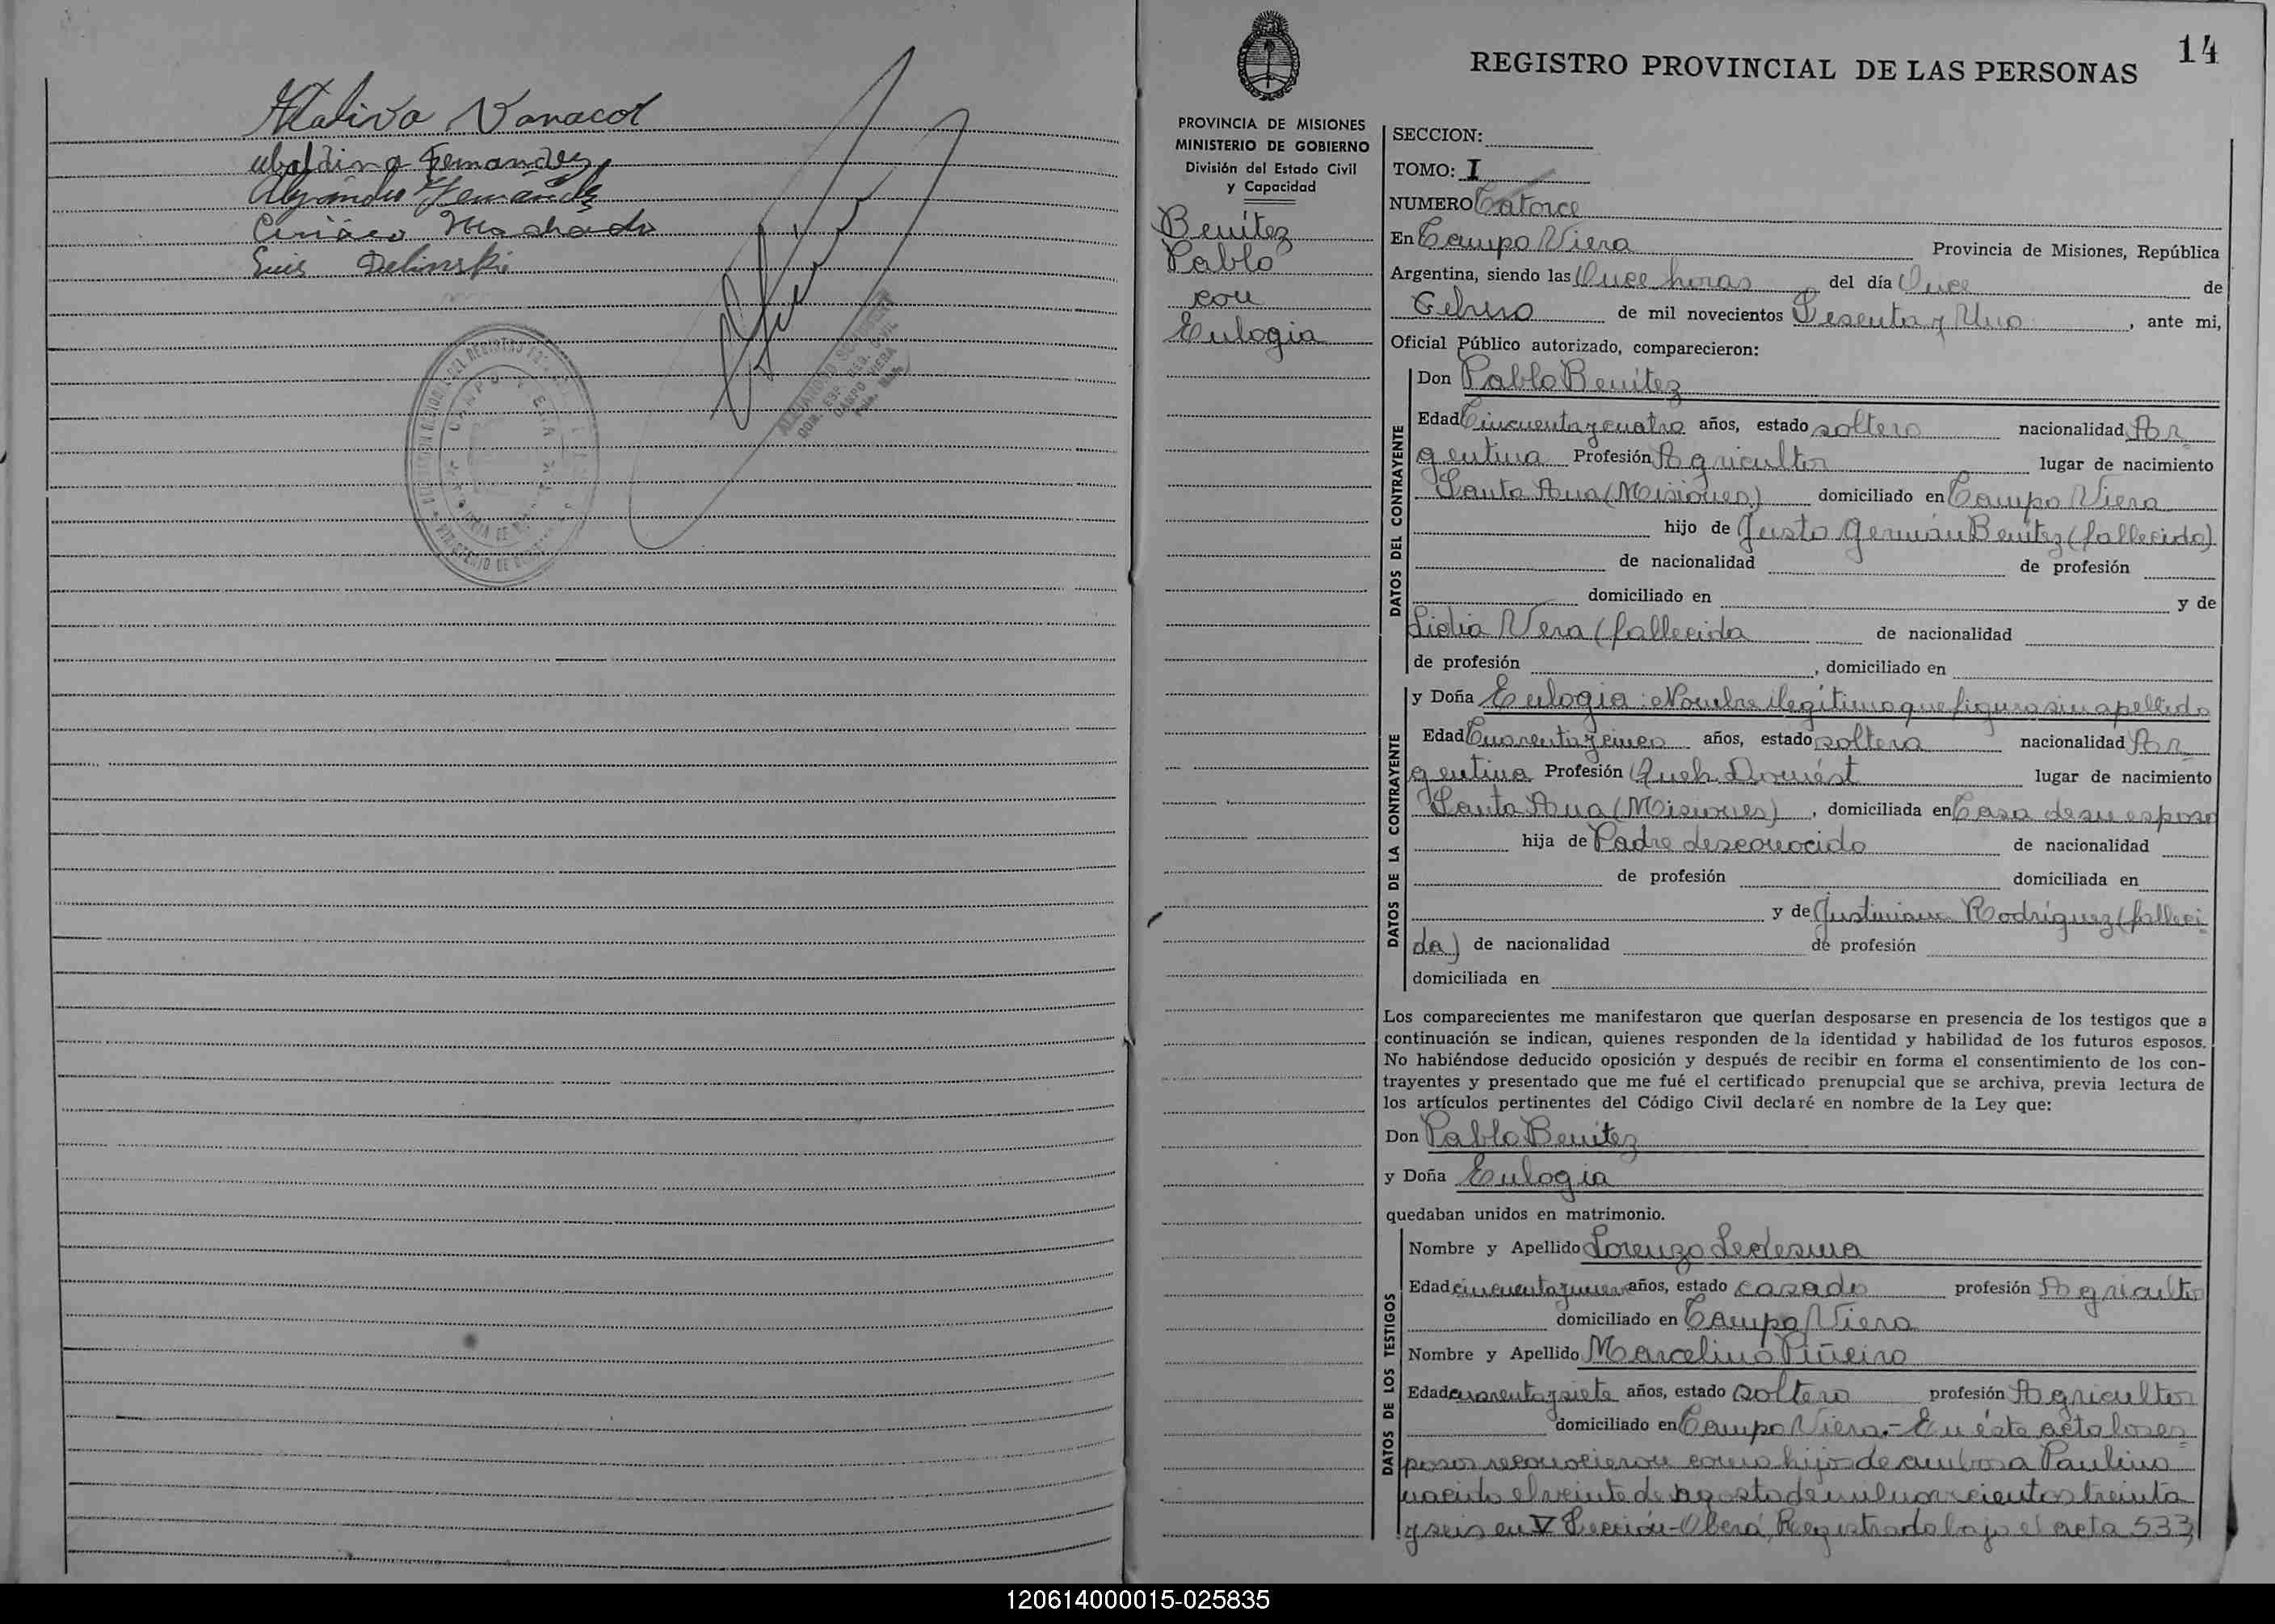 Ataliva Vanacor
ubaldina Fernandez
Alejandro Fernández
Ciriaco Machado
Luis Delinski
CAMPO VIERA
14
REGISTRO PROVINCIAL DE LAS PERSONAS
PROVINCIA DE MISIONES
MINISTERIO DE GOBIERNO
División del Estado Civil
y Capacidad
Benítez
Pablo
con
Eulogia
SECCION:
TOMO: I
NUMERO Catorce
En Campo Viera Provincia de Misiones, República
Argentina, siendo las Once horas del día Once de
Febrero de mil novecientos Sesenta y Uno, ante mi,
Oficial Público autorizado, comparecieron:
DATOS DEL CONTRAYENTE
Don Pablo Benítez
Edad Cincuenta y cuatro años, estado soltero nacionalidad Ar
gentina Profesión Agricultor lugar de nacimiento
Santa Ana (Misiones) domiciliado en Campo Viera
hijo de Justo Germán Benítez (fallecido)
de nacionalidad de profesión
domiciliado en y de
Lidia Vera (fallecida de nacionalidad
de profesión , domiciliado en
DATOS DE LA CONTRAYENTE
y Doña Eulogia: Nombre ilegítimo que figura sin apellido
Edad Cuarenta y cinco años, estado soltera nacionalidad Ar
gentina Profesión Queh. Domést lugar de nacimiento
Santa Ana (Misiones), domiciliada en Casa de su esposo
hija de Padre desconocido de nacionalidad
de profesión domiciliada en
y de Justiniana Rodríguez (falleci
da) de nacionalidad de profesión
domiciliada en
Los comparecientes me manifestaron que querían desposarse en presencia de los testigos que a
continuación se indican, quienes responden de la identidad y habilidad de los futuros esposos.
No habiéndose deducido oposición y después de recibir en forma el consentimiento de los con-
trayentes y presentado que me fué el certificado prenupcial que se archiva, previa lectura de
los artículos pertinentes del Código Civil declaré en nombre de la Ley que:
Don Pablo Benítez
y Doña Eulogia
quedaban unidos en matrimonio.
DATOS DE LOS TESTIGOS
Nombre y Apellido Lorenzo Ledesma
Edad cincuenta y nueve años, estado casado profesión Agricultor
domiciliado en Campo Viera
Nombre y Apellido Marcelino Piñeiro
Edad cuarenta y siete años, estado soltero profesión Agricultor
domiciliado en Campo Viera.- En éste acta los es
posos reconocieron como hijos de ambos a Paulino
nacido el veinte de agosto de mil novecientos treinta
y seis en V Sección-Oberá, Registrado bajo el acta 533,
120614000015-025835